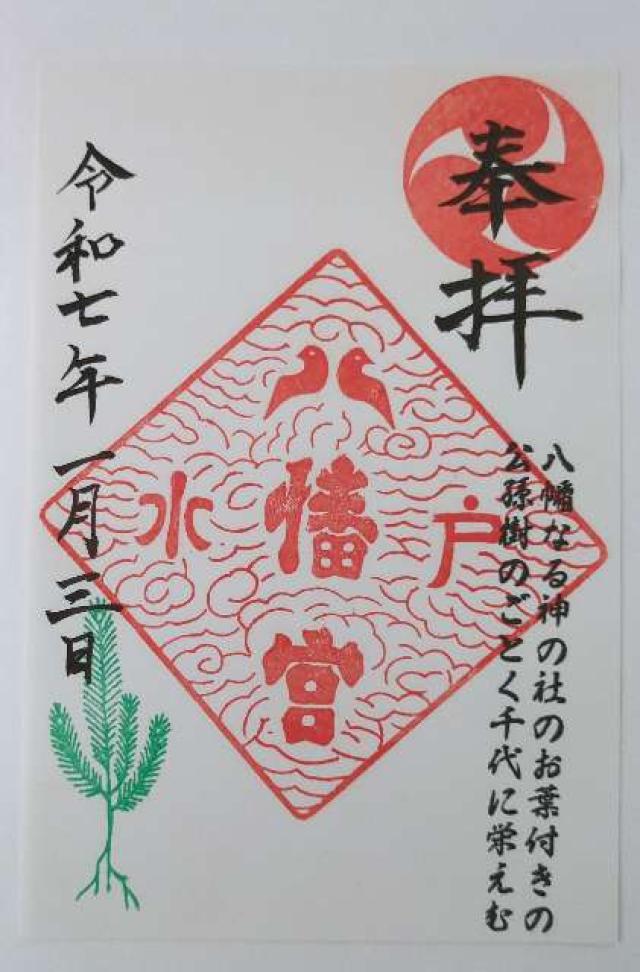 奉拝
八幡なる神の社のお葉付きの
公孫樹のごとく千代に栄えむ
水戸
八幡宮
令和七年一月三日